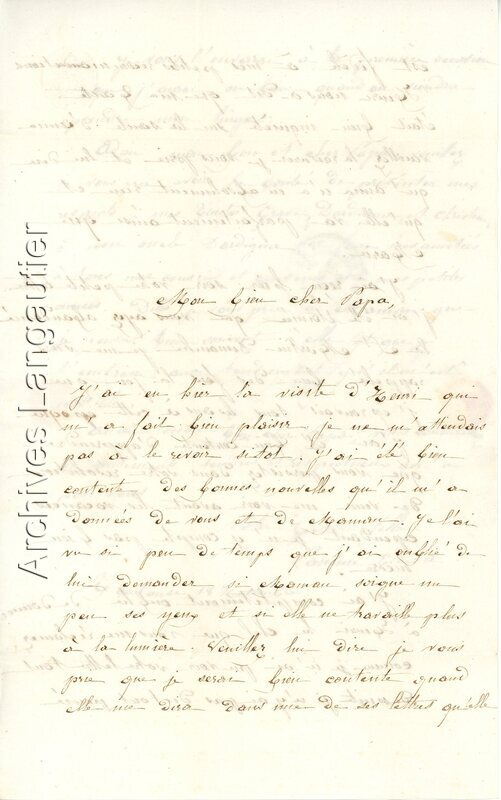 Mon bien cher Papa,
J'ai eu hier la visite d'Henri qui
m'a fait bien plaisir je ne m'attendais
pas à le revoir sitot. J'ai été bien
contente des bonnes nouvelles qu'il m'a
données de vous et de Maman. Je l'ai
vu si peu de temps que j'ai oublié de
lui demander si Maman soigne un
peu ses yeux et si elle ne travaille plus
à la lumière. Veuillez lui dire je vous
prie que je serai bien contente quand
elle me dira dans une de ses lettres qu'elle
Archives Langautier